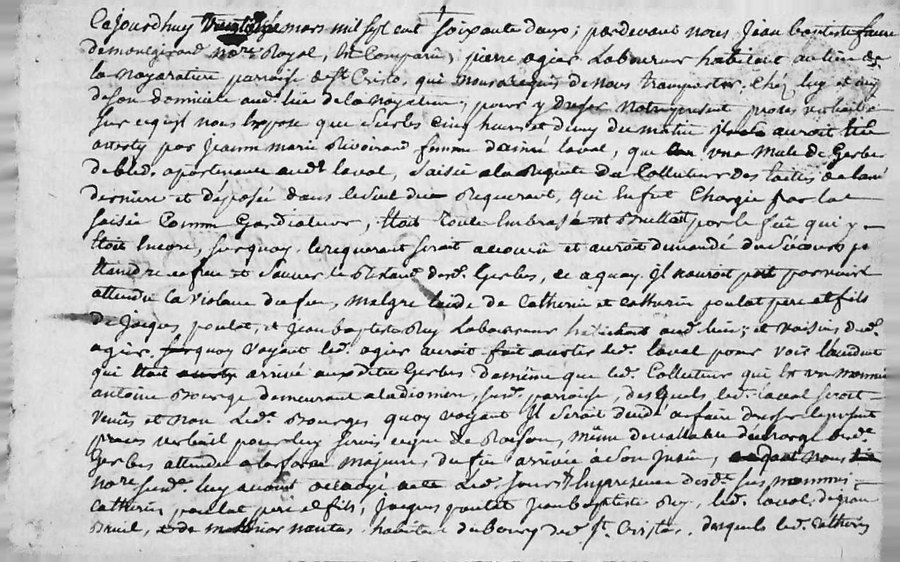 Cejourdhuy mars mil sept cent soixante deux, pardevant nous Jean baptiste faure
demontgirand no.re Royal, est Comparu, pierre agier Laboureur habitant au lieu de
la Noyarature parroisse de St Cristo, qui nous a requis de nous transporter Chéz luy et
de son domicile aud. lieu de la noyarature, pour y dresser notre present proces verbail
sur ce qu'il nous Expose que Sur les cinq heures et demy du matin il auroit été
averty par Jeanne marie Rivoirand femme daimé laval, que une Mule de Gerbes
de bled, apartenante aud. laval, saisie a la Requete du Collecteur des tailles de lané
derniere et déposée dans le Requerant, qui en fut Chargé par la
saisie Comme Gardiateur, Etoit toute Embrasée et Brullait par le feu qui y
Etoit Encore, surquoy le requerant seroit acourû et auroit demandé du Secours p.
Etaindre ce feu et Sauver le Restant desd. Gerbes, ce a quoy il nauroit parvenir
attendu la violance du feu, malgré laide de Catherin et Catherin poulat pere et fils
de Jacques poulat, et Jean baptiste Rey Laboureur habitant aud. lieu, et voisins dud.
agier, surquoy voyant led. agier auroit fait avertir led. laval pour voir laccident
qui Etoit arrivé auxdites Gerbes de même que led. Collecteur qui Est un nommé
antoine Bourge demeurant a sus. parroisse, desquels led. laval seroit
venû et non led. Bourges quoy voyant il seroit decidé a faire dresser le present
proces verbail pour luy servir ce que de Raison, même de vallable décharge desd.
Gerbes attendu la force majeure, du feu arrivée a son Inscu, nous
no.re sus.d. luy avons octroyé acte led. jour En presence desd. sus nommés
Catherin poulat pere et fils, Jacques poulat Jean baptiste Rey, led. laval, de
habitant du Bourg dud. St Cristo, desquels led. Catherin